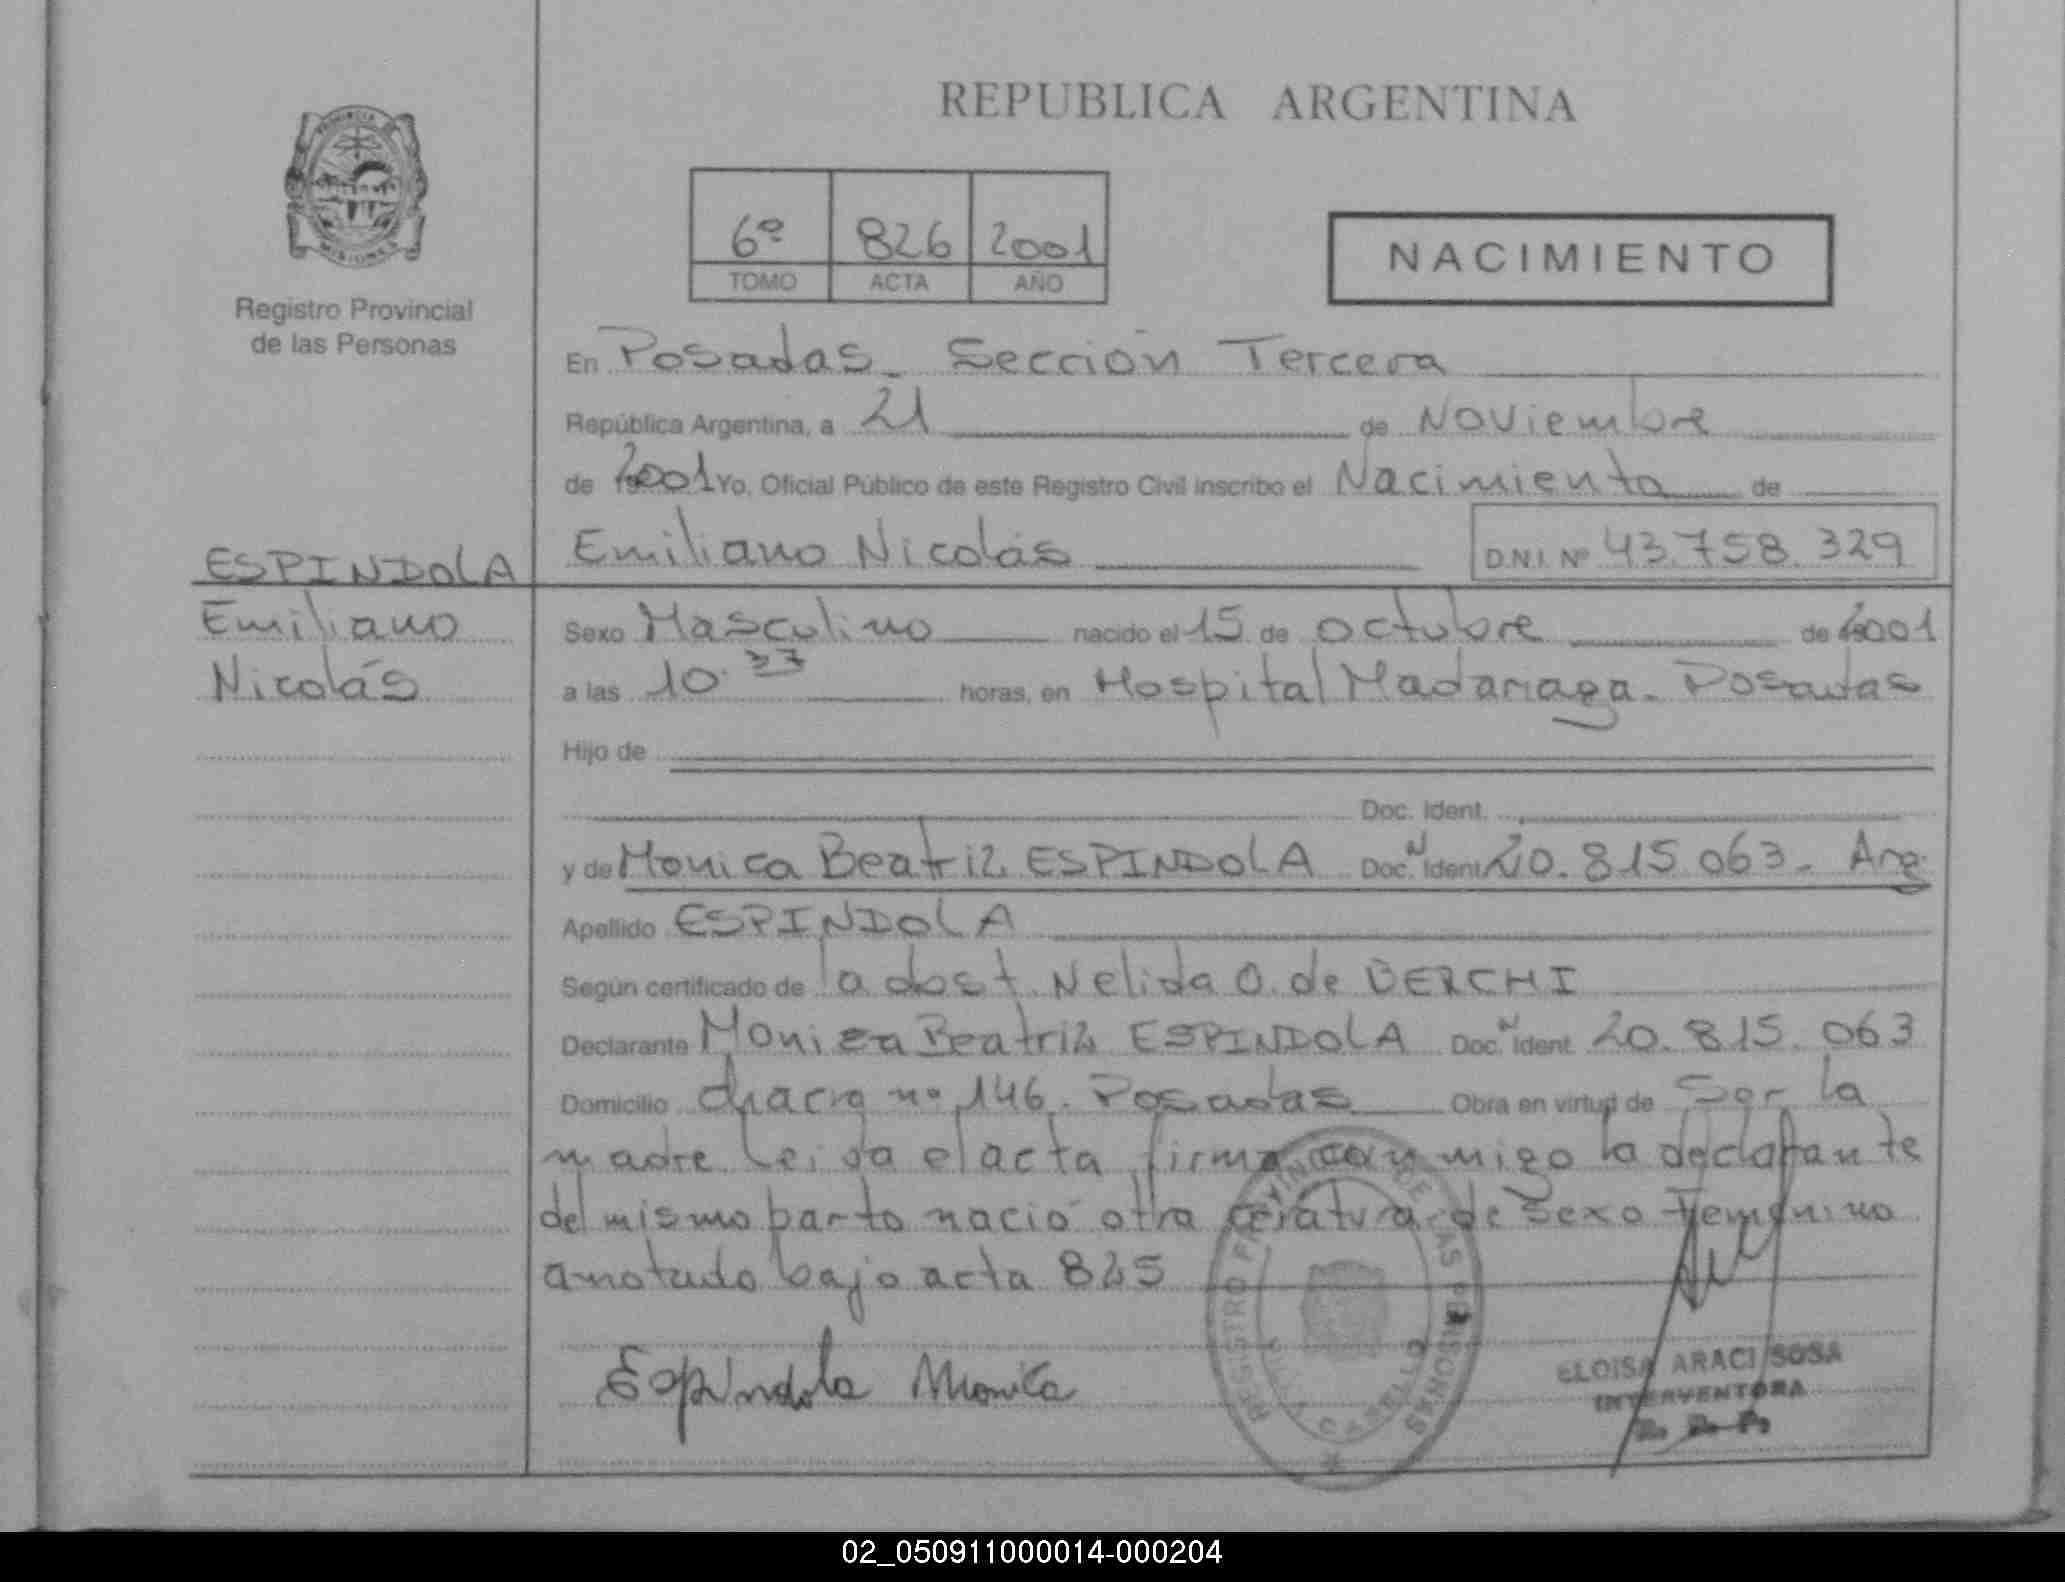 REPUBLICA ARGENTINA
PROVINCIA DE
MISIONES
Registro Provincial
de las Personas
6º 826 2001
TOMO ACTA AÑO
NACIMIENTO
En Posadas - Sección Tercera
República Argentina, a 21 de Noviembre
de 2001 Yo, Oficial Público de este Registro Civil inscribo el Nacimiento de
Emiliano Nicolás D.N.I. Nº 43.758.329
ESPINDOLA
Emiliano
Nicolás
Sexo Masculino nacido el 15 de octubre de 2001
a las 10.37 horas, en Hospital Madariaga - Posadas
Hijo de
Doc. Ident.
y de Monica Beatriz ESPINDOLA Doc. N Ident 20.815.063 - Arg.
Apellido ESPINDOLA
Según certificado de la obst. Nelida O. de BERCHI
Declarante Monica Beatriz ESPINDOLA Doc. N Ident. 20.815.063
Domicilio chacra nº 146. Posadas Obra en virtud de Ser la
madre Leida el acta firma conmigo la declarante
del mismo parto nació otra ceratura de sexo Femenino
anotado bajo acta 825
Espindola Monica
REGISTRO PROVINCIAL DE LAS PERSONAS
CABELLO
ELOISA ARACI SOSA
INTERVENTORA
02_050911000014-000204